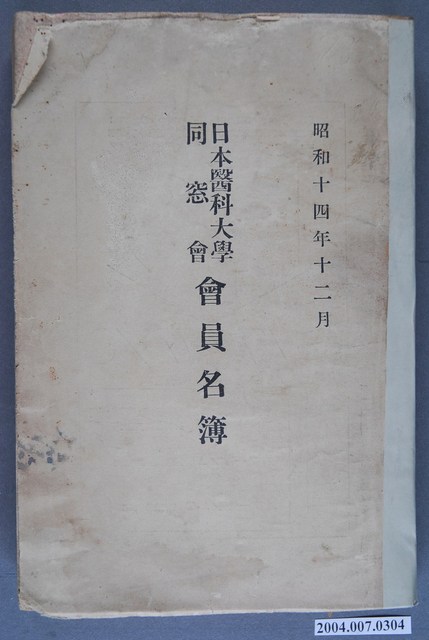 昭和十四年十二月
日本醫科大學
同窓會
會員名簿
2004.007.0304